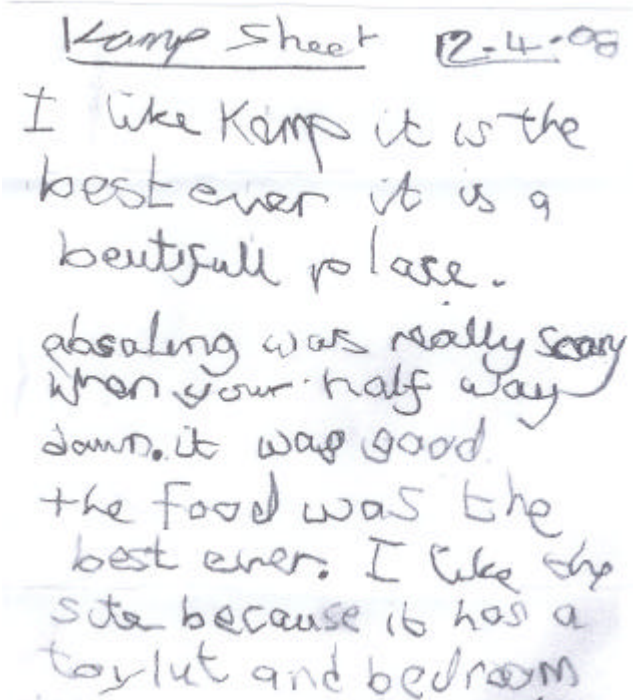 Kamp Sheet 12-4-08
I like Kamp it is the
best ever it is a
beutifull place.
absaling was really scary
when your half way
down. it was good
the food was the
best ever. I like the
site because it has a
toylut and bedroom